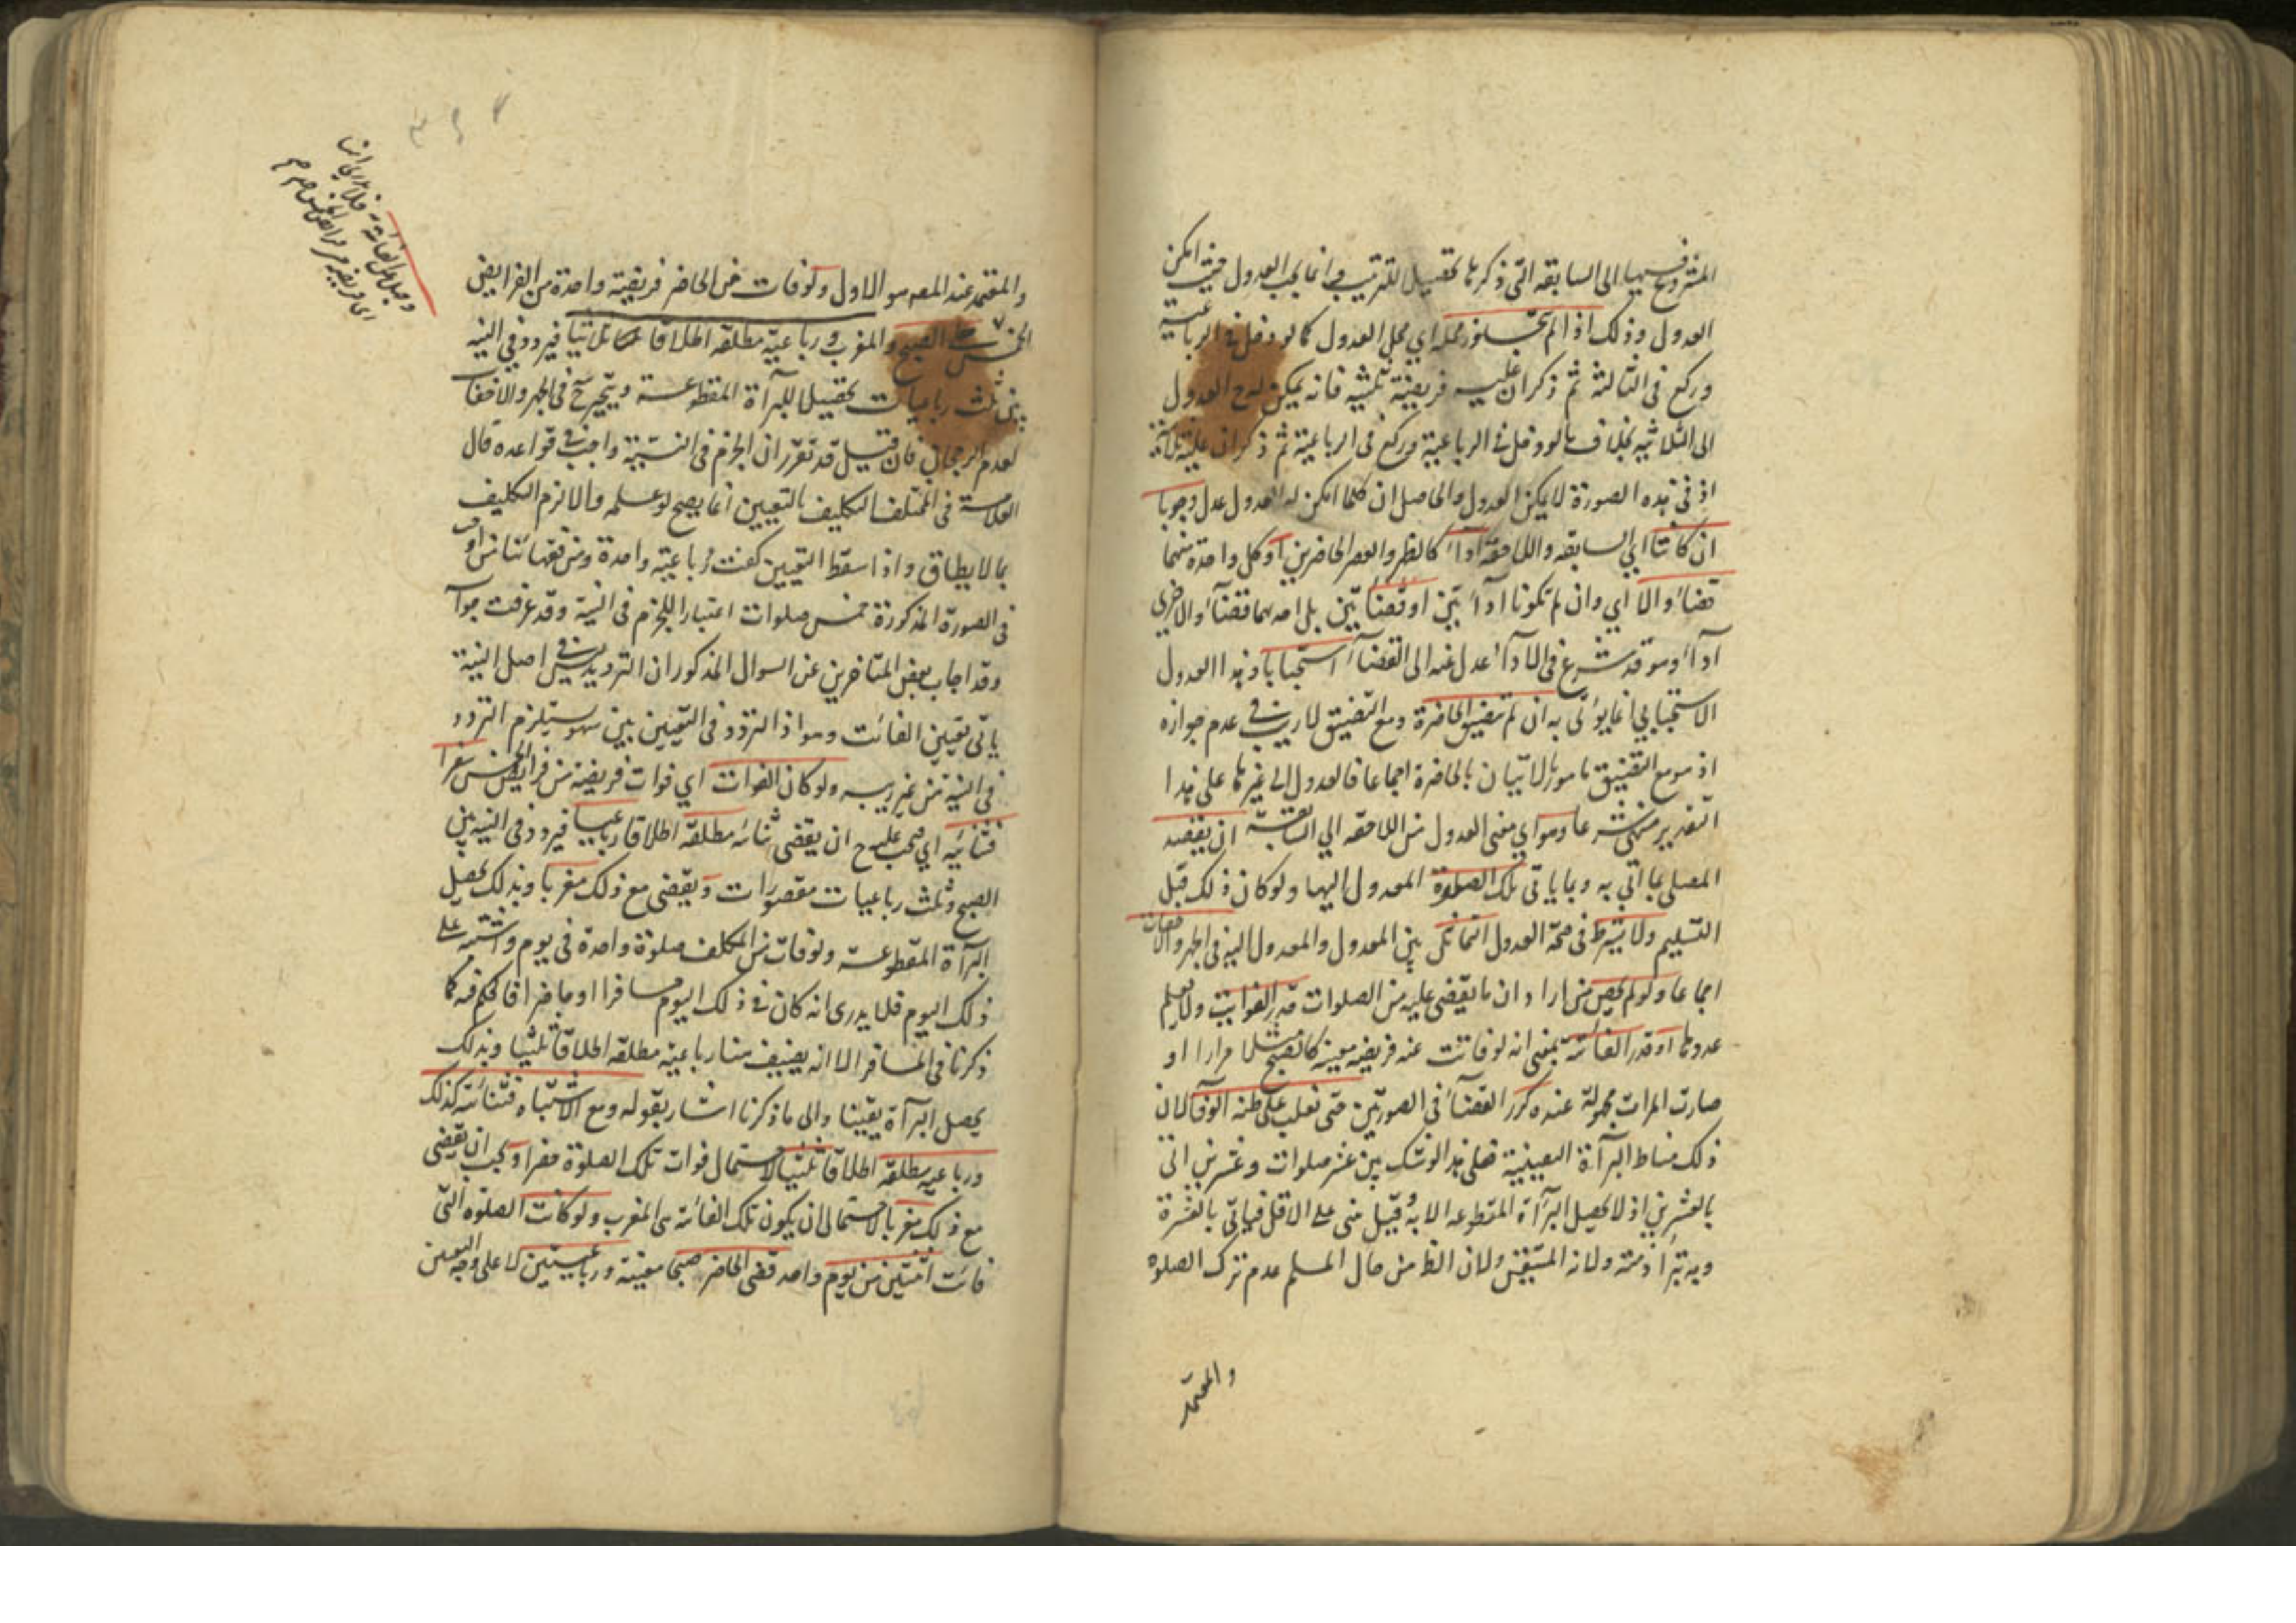 المشروع فيها الى السابقه التى ذكرها تحصيلا للترتيب وانما يجب العدول حيث امكن
العدول وذلك اذا لم يتجاوز محله اي محل العدول كما لو دخل في الرباعية
وركع في الثالثة ثم ذكر ان عليه فريضة ثلثيه فانه يمكن له ح العدول
الى الثلاثيه بخلاف ما لو دخل في الرباعية وركع في الرباعية ثم ذكر ان عليه ثلاثية
اذ في هذه الصورة لا يمكن العدول والحاصل ان كلما امكن له العدول عدل وجوبا
ان كانتا اي السابقه واللاحقة اداء كالظهر والعصر الحاضرين او كل واحدة منهما
قضاء والا اي وان لم تكونا ادائيتين او قضائيتين بل احدهما قضاء والاخرى
اداء وهو قد شرع في الاداء عدل عنه الى القضاء استحبابا وهذا العدول
الاستحبابي انما يؤتى به ان لم تتضيق الحاضرة ومع التضيق لا ريب في عدم جوازه
اذ هو مع التضيق مامور بالاتيان بالحاضرة اجماعا فالعدول الى غيرها على هذا
التقدير منهى شرعا وهو اي معنى العدول من اللاحقه الي السابقة ان يقصد
المصلي بما اتي به وبما ياتى تلك الصلوة المعدول اليها ولو كان ذلك قبل
التسليم ولا يشترط في صحة العدول التماثل بين المعدول والمعدول اليه في الجهر والاخفات
اجماعا ولو لم يحص من اراد ان ما يقضى عليه من الصلوات قدر الفوايت ولا يعلم
عددها او قدر الفائتة بمعنى انه لو فاتت عنه فريضه معينة كالصبح مثلا مرارا او
صارت المرات مجهولة عنده كرر القضاء في الصورتين حتى تغلب على ظنه الوفا لان
ذلك مناط البرآءة اليقينية فعلى هذا لو شك بين عشر صلوات وعشرين اتى
بالعشرين اذ لا يحصل البرآءة المقطوعه الا به وقيل بنى على الاقل فياتى بالعشرة
وبه تبرأ ذمته ولانه المتيقن ولان الظ من حال المسلم عدم ترك الصلوه
والمعتمد
والمعتمد عند المصه هو الاول ولو فات من الحاضر فريضة واحدة من الفرايض
الخمس صلى الصبح والمغرب ورباعية مطلقة اطلاقا ثلاثيا فيردد في النيه
بين ثلث رباعيات تحصيلا للبرآءة المقطوعة ويتخير ح في الجهر والاخفات
لعدم الرجحان فان قيل قد تقرر ان الجزم في النية واجب في قواعده قال
العلامة في المختلف التكليف بالتعيين انما يصح لو علمه والا لزم التكليف
بما لا يطاق واذا سقط التعيين كفت رباعية واحدة ومن فقهائنا من اوجب
في الصورة المذكورة خمس صلوات اعتبارا للجزم في النية وقد عرفت جوابه
وقد اجاب بعض المتاخرين عن السوال المذكور ان الترديد ليس في اصل النية
ياتى تعيين الفائت وهو اذ التردد في التعيين بين سهو يستلزم التردد
في النية من غير ريب ولو كان الفوات اي فوات فريضة من فرايض الخمس سفرا
فثنائيه اي يجب عليه ح ان يقضي ثنائه مطلقة اطلاقا رباعيا فيردد في النية بين
الصبح وثلث رباعيات مقصورات ويقضي مع ذلك مغربا وبذلك يحصل
البرآءة المقطوعة ولو فات من المكلف صلوة واحدة في يوم واشتبه على
ذلك اليوم فلا يدرى انه كان في ذلك اليوم مسافرا او حاضرا فالحكم فيه كما
ذكرنا في المسافر الا انه يضيف هنا رباعية مطلقة اطلاقا ثلثيا وبذلك
يحصل البرآءة يقينا والى ما ذكرنا اشار بقوله ومع الاشتباه فثنائية كذلك
ورباعيه مطلقة اطلاقا ثلثيا لاحتمال فوات تلك الصلوة حضرا ويجب ان يقضى
مع ذلك مغربا لاحتمال ان يكون تلك الفائته هى المغرب ولو كانت الصلوه التى
فاتت اثنتين من يوم واحد قضى الحاضر صبحا معينة ورباعيتين لا على وجه التعيين